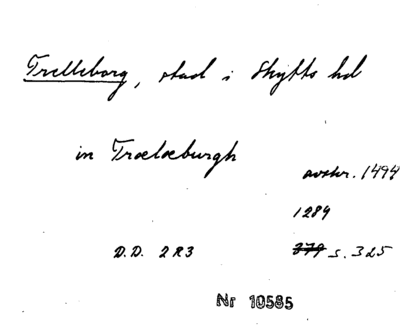 Trelleborg, stad i Skytts hd
in Trælæburgh
avskr. 1494
1284
D.D. 2R3 379 s. 325
Nr 10585